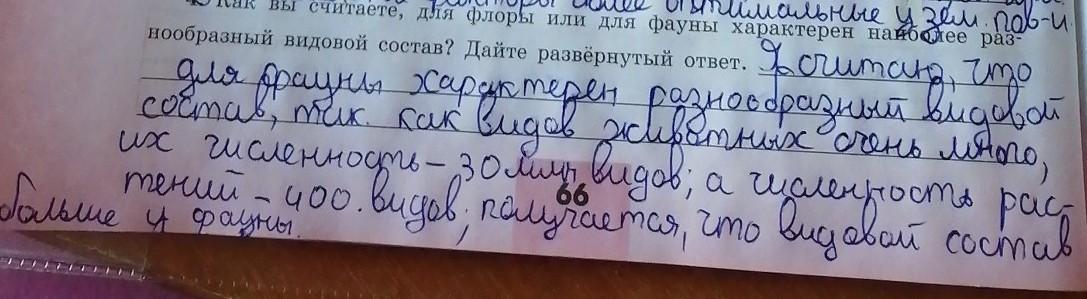 факторы более оптимальные у зем. пов-и.
Как вы считаете, для флоры или для фауны характерен наиболее раз-
нообразный видовой состав? Дайте развёрнутый ответ. Я считаю, что
для фауны характерен разнообразный видовой
состав, так как видов животных очень много,
их численность – 30 млн видов; а численность рас-
тений – 400. видов; получается, что видовой состав
больше у фауны.
66